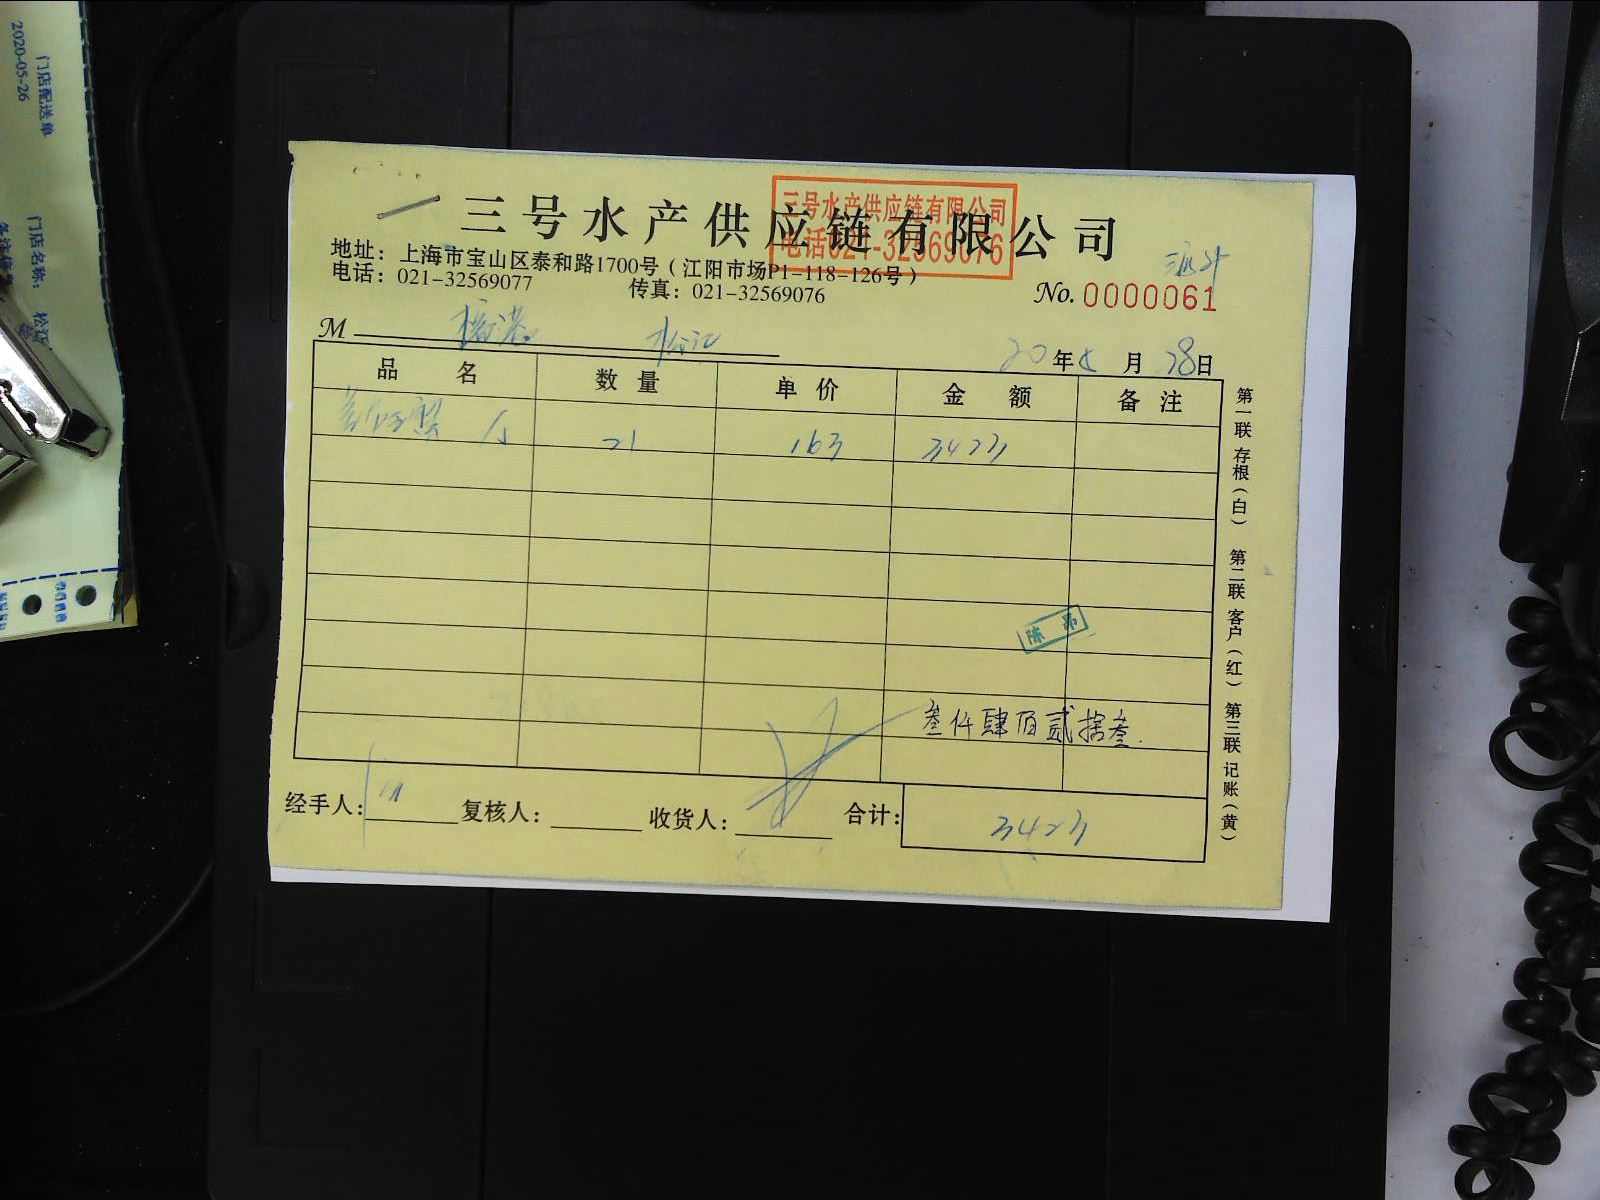 三号水产供应链有限公司
三号水产供应链有限公司
电话021-32569076
地址：上海市宝山区泰和路1700号（江阳市场P1-118-126号）
电话：021-32569077 传真：021-32569076
No. 0000061
M 松江
20年 月 28日
品名 数量 单价 金额 备注
21 163 3423
陈
叁仟肆佰贰拾叁.
经手人： 复核人： 收货人： 合计： 3423
第一联 存根（白） 第二联 客户（红） 第三联 记账（黄）
门店配送单
2020-05-26
门店名称：